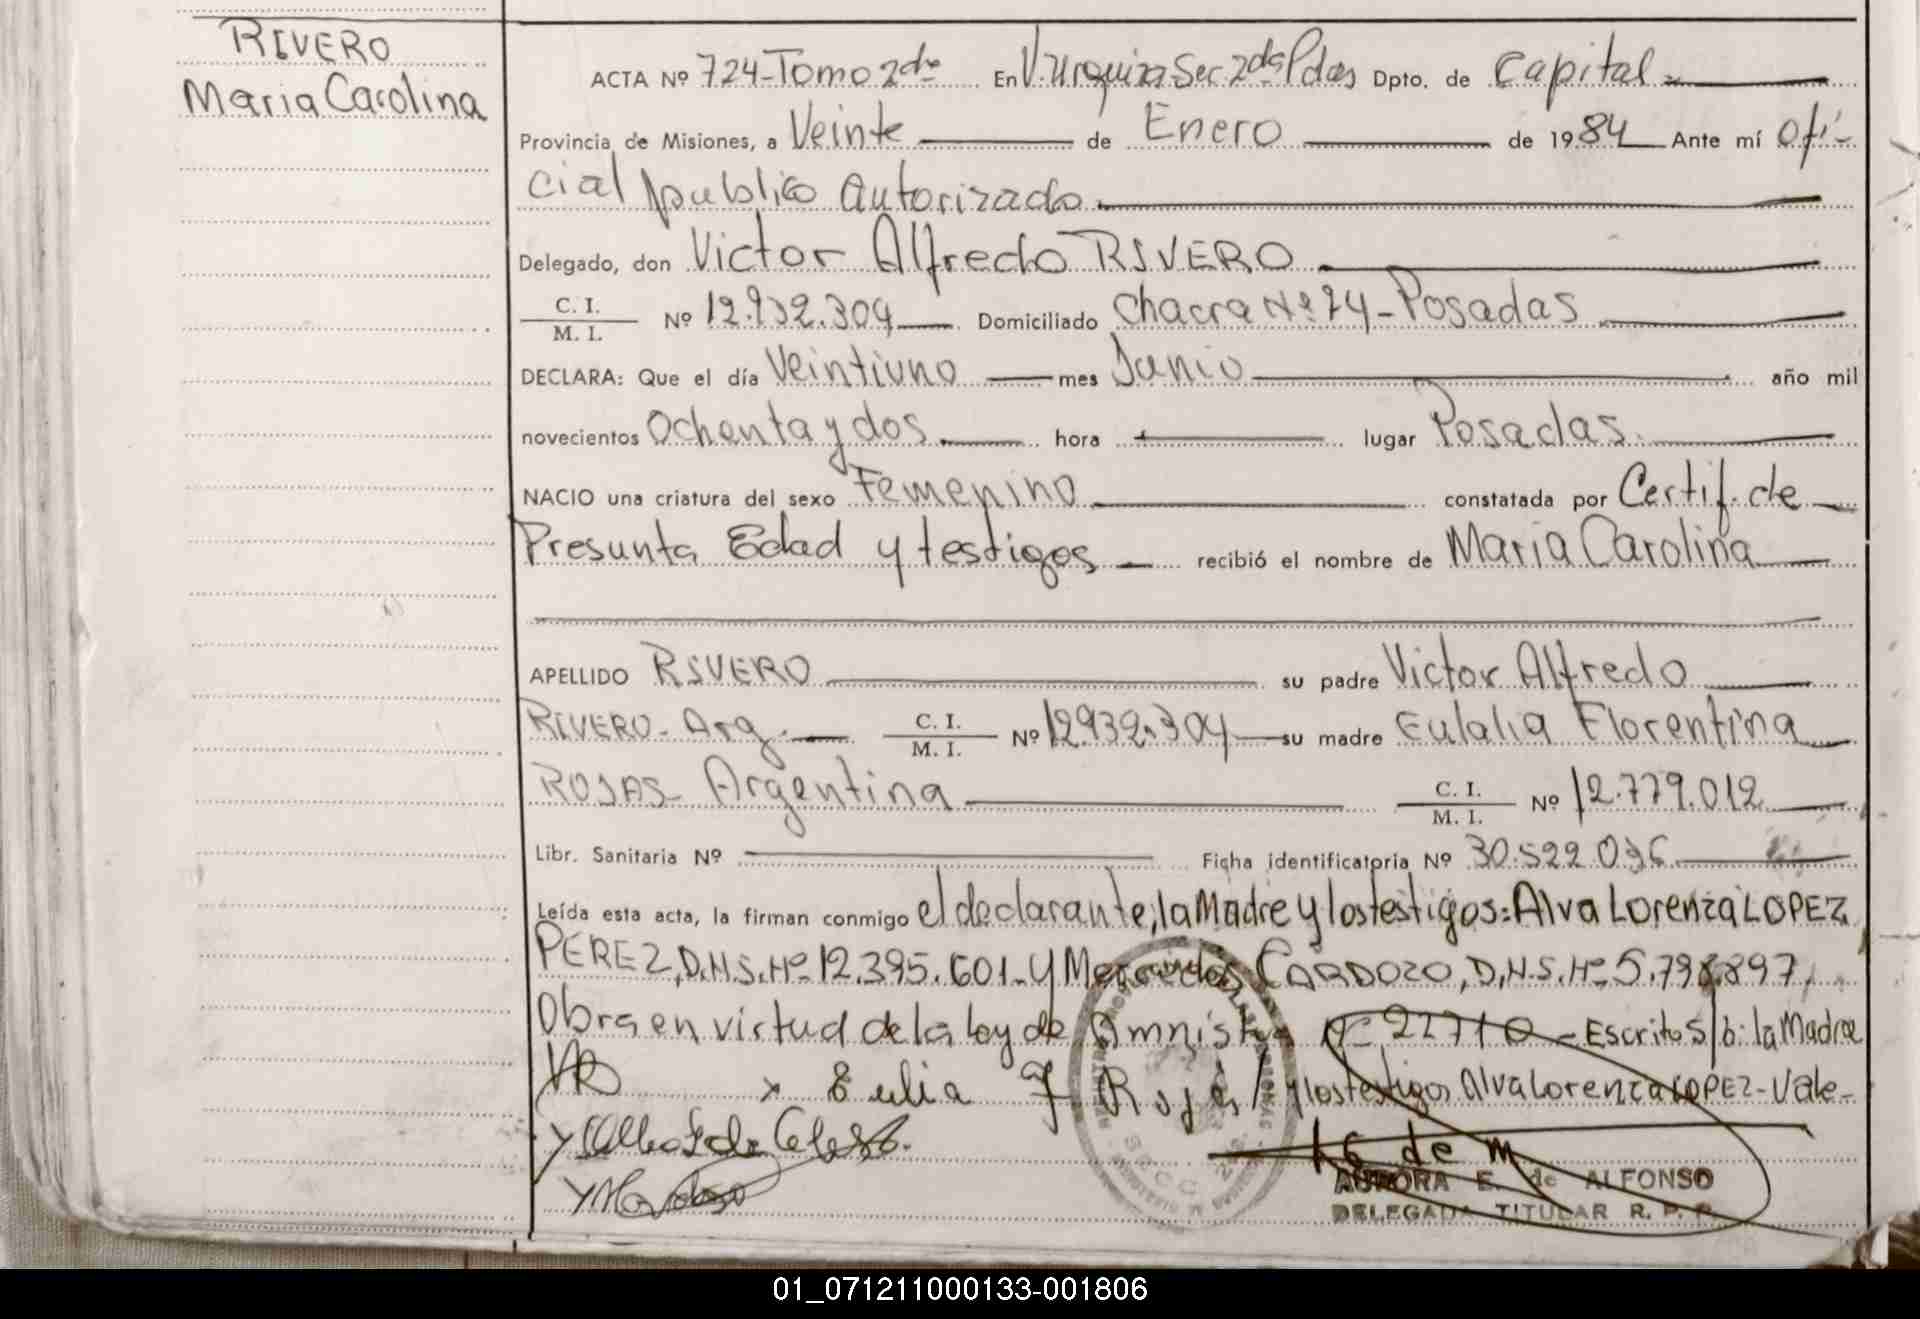 RIVERO
Maria Carolina
ACTA Nº 724-Tomo 2do En V. Urquiza Sec. 2da Pdas Dpto. de Capital
Provincia de Misiones, a Veinte de Enero de 1984 Ante mí Ofi-
cial publico Autorizado
Delegado, don Victor Alfredo RIVERO
C. I.
M. I. Nº 12.932.304 Domiciliado Chacra Nº 24-Posadas
DECLARA: Que el día Veintiuno mes Junio año mil
novecientos Ochenta y dos hora lugar Posadas.
NACIO una criatura del sexo Femenino constatada por Certif. de
Presunta Edad y testigos recibió el nombre de Maria Carolina
APELLIDO RIVERO su padre Victor Alfredo
RIVERO- Arg. C. I.
M. I. Nº 12.932.304 su madre Eulalia Florentina
ROJAS- Argentina C. I.
M. I. Nº 12.779.012
Libr. Sanitaria Nº Ficha identificatoria Nº 30.522.036
Leída esta acta, la firman conmigo el declarante, la Madre y los testigos: Alva Lorenza LOPEZ
PEREZ, D.N.I. Nº 12.395.601- y Mercedes CARDOZO, D.N.I. Nº 5.798.897,
Obra en virtud de la ley de Amnistia Nº 22710 - Escrito s/b: la Madre
y los testigos Alva Lorenza LOPEZ - Vale-
x Eulia F Rojas
AURORA E. de ALFONSO
DELEGADA TITULAR R. P. P.
01_071211000133-001806